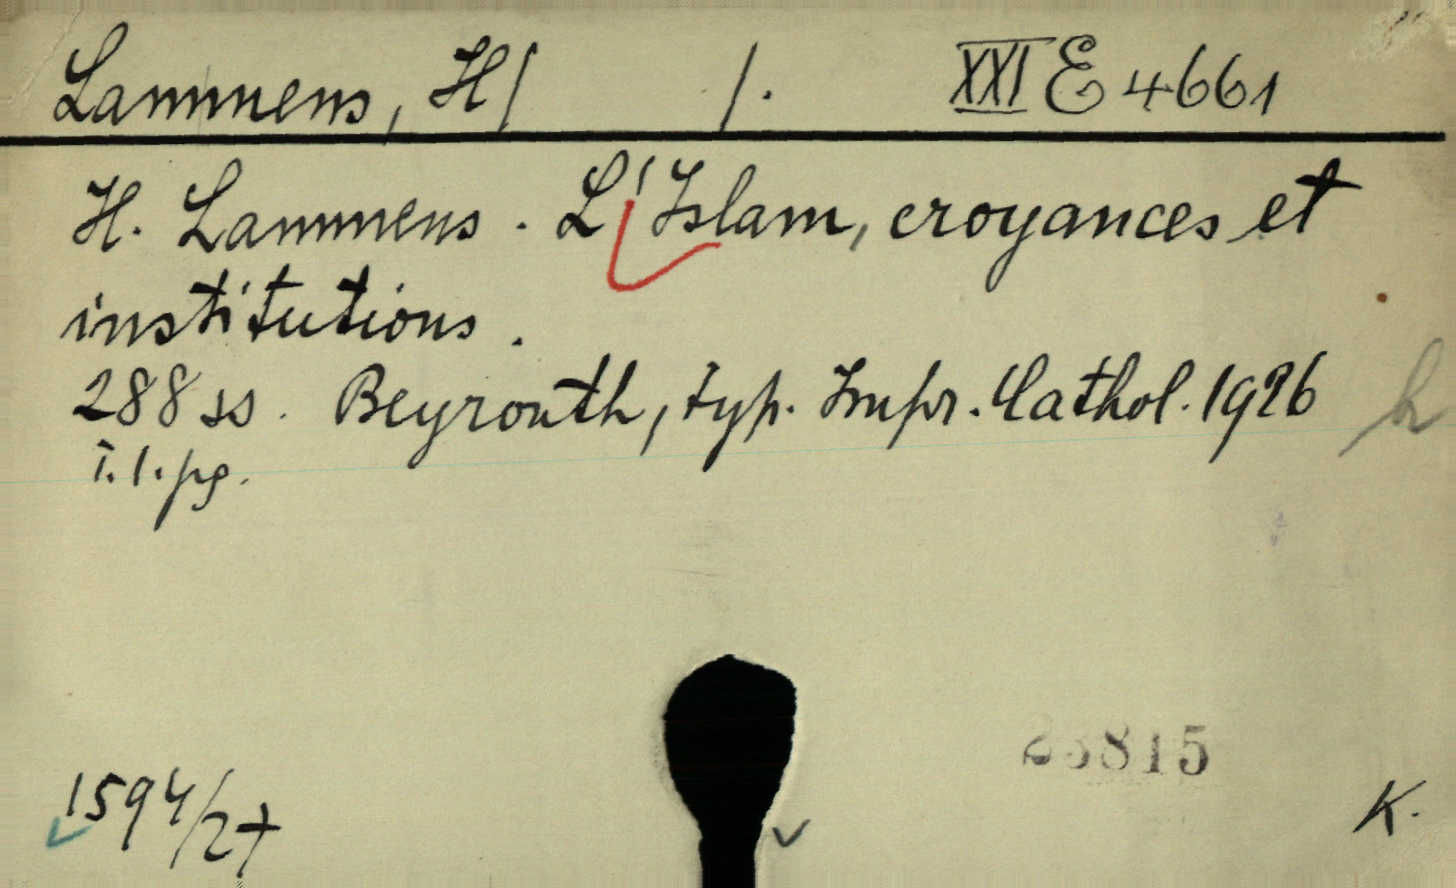 Lammens, H/ /. XXI E 4661
H. Lammens. L'Islam, croyances et
institutions.
288 ss. Beyrouth, typ. Impr. Cathol. 1926
i. 1. pg.
23815
1594/27
K.